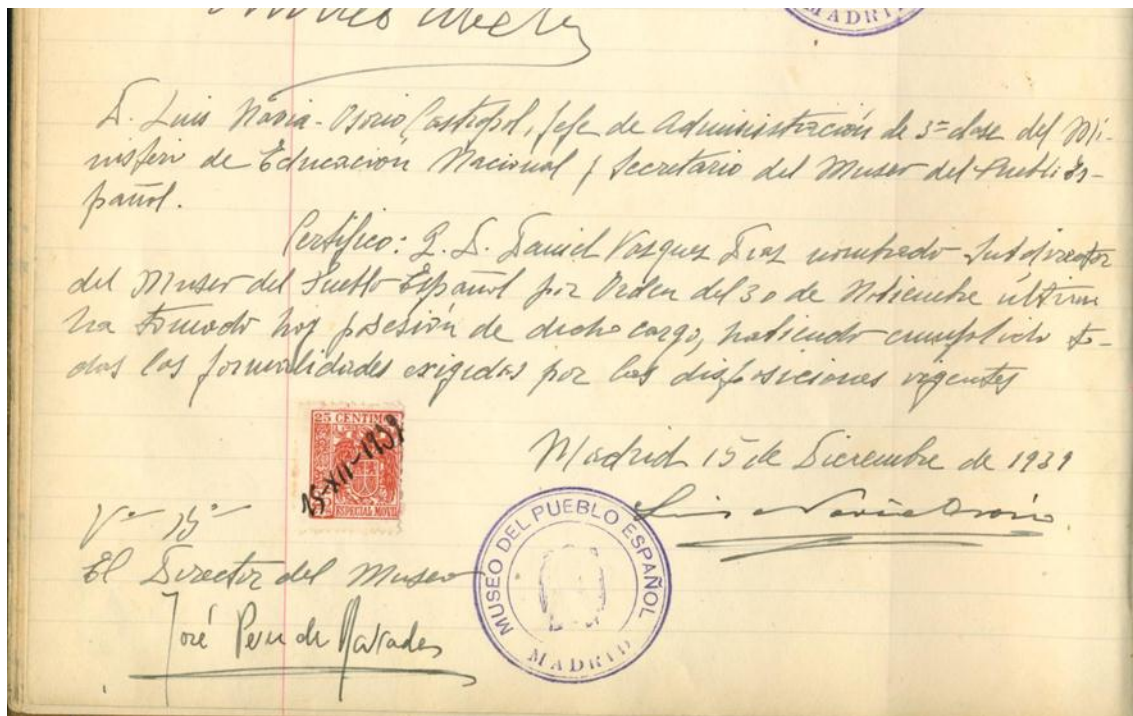 MADRID
D. Luis Navia-Osorio Castropol, Jefe de Administración de 3ª clase del Mi-
nisterio de Educación Nacional y Secretario del Museo del Pueblo Es-
pañol.
Certifico: Q. D. Daniel Vazquez Diaz nombrado Subdirector
del Museo del Pueblo Español por Orden del 30 de Noviembre último
ha tomado hoy posesión de dicho cargo, habiendo cumplido to-
das las formalidades exigidas por las disposiciones vigentes
25 CENTIMOS
15-XII-1939
ESPECIAL MOVIL
Madrid 15 de Diciembre de 1939
Luis Navia Osorio
Vº Bº
El Director del Museo
José Perez de Barradas
MUSEO DEL PUEBLO ESPAÑOL
MADRID